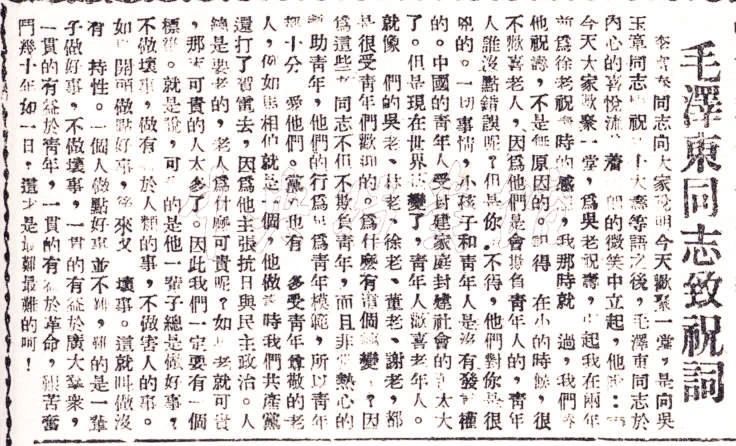 毛澤東同志致祝詞
李富春同志向大家說明今天歡聚一堂，是向吳
玉章同志慶祝六十大壽等語之後，毛澤東同志於
內心的喜悅流 着 的微笑中立起，他說：
今天大家歡聚一堂，爲吳老祝壽，引起我在兩年
前爲徐老祝壽時的感想，我那時就 過，我們
他祝壽，不是無原因的。記得 在小的時候，很
不歡喜老人，因爲他們是會欺負青年人的，
人誰沒點錯誤呢？但是你 不得，他們對你是很
兇的。一切事情，小孩子和青年人是沒有發言權
的。中國的青年人受封建家庭封建社會的苦太大
了。但是現在世界 變了，青年人歡喜老年人。
就像 們的吳老、林老、徐老、董老、謝老，都
是很受青年們歡迎的。爲什麼有這個 變？因
爲這些老同志不但不欺負青年，而且非常熱心的
幫助青年，他們的行爲足爲青年模範，所以青年
都十分 愛他們。黨 也有 多受青年尊敬的老
人，例如馬相伯就是一個，他做壽時我們共產黨
還打了賀電去，因爲他主張抗日與民主政治。人
總是要老的，老人爲什麼可貴呢？如 老就可貴
，那末可貴的人太多了。因此我們一定要有一個
標準。就是說，可 的是他一輩子總是做好事，
不做壞事，做有 於人類的事，不做害人的事。
如 開頭做點好事，後來又 壞事。這就叫做沒
有 持性。一個人做點好事並不難，難的是一輩
子做好事，不做壞事，一貫的有益於廣大羣衆，
一貫的有益於青年，一貫的有益於革命，艱苦奮
鬥幾十年如一日，這才是最難最難的呵！